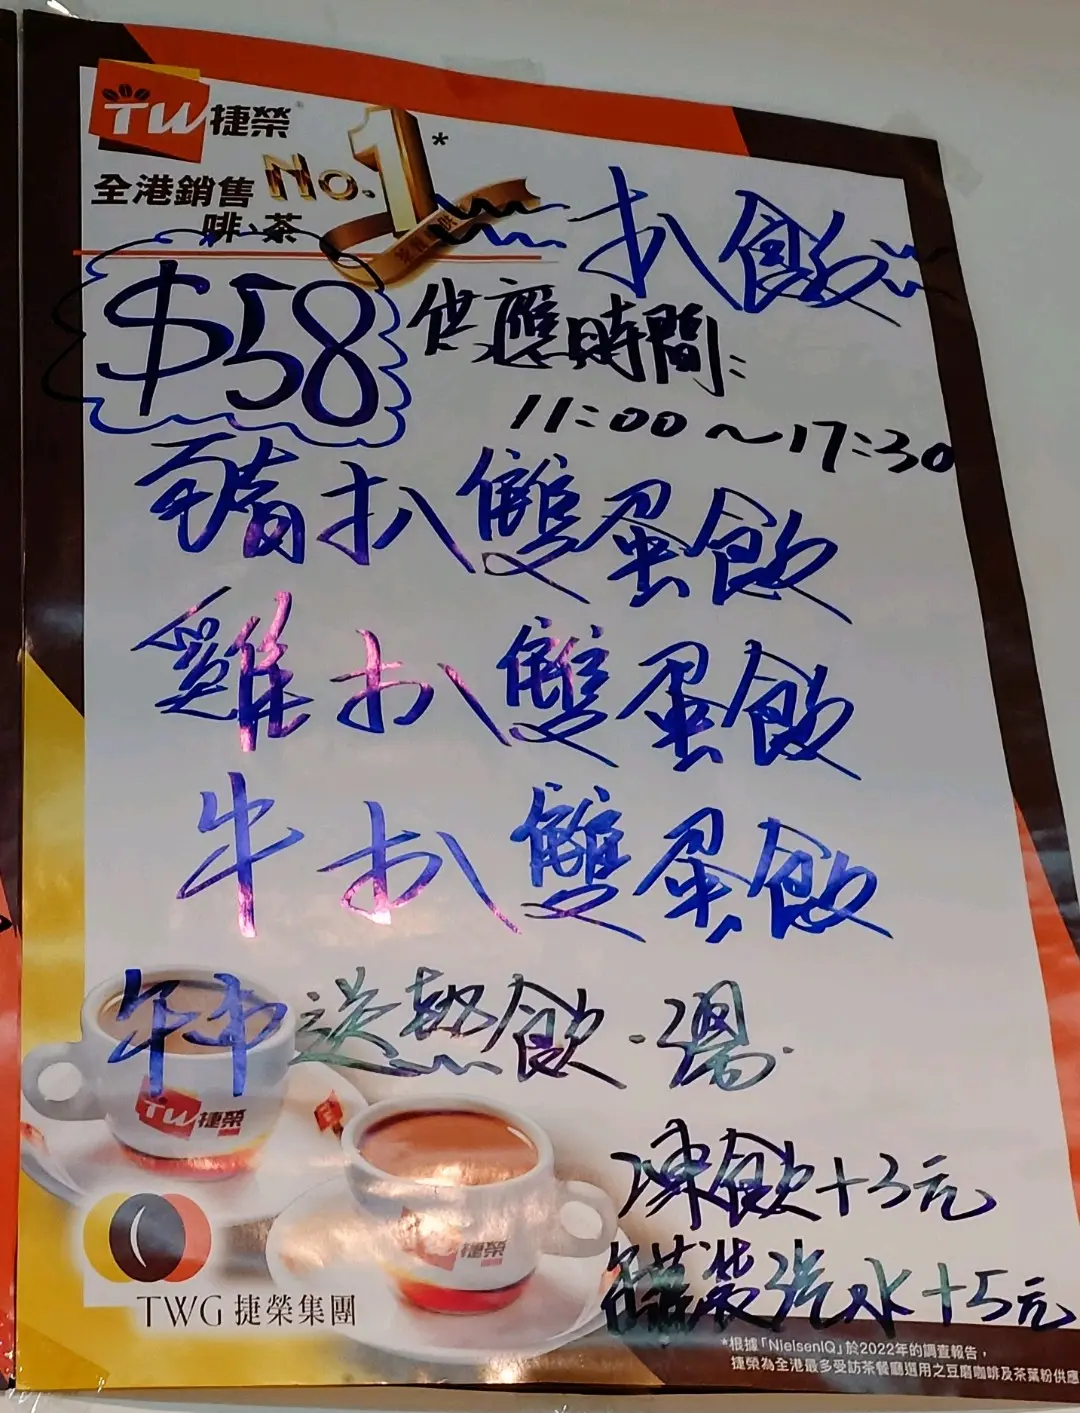 TW捷榮®
全港銷售 No.1*
啡·茶
扒飯
$58 供應時間:
11:00~17:30
豬扒雙蛋飯
雞扒雙蛋飯
牛扒雙蛋飯
午市送熱飲·湯
TW捷榮
凍飲+3元
捷榮
罐裝汽水+5元
TWG 捷榮集團
*根據「NielsenIQ」於2022年的調查報告,
捷榮為全港最多受訪茶餐廳選用之豆磨咖啡及茶葉粉供應